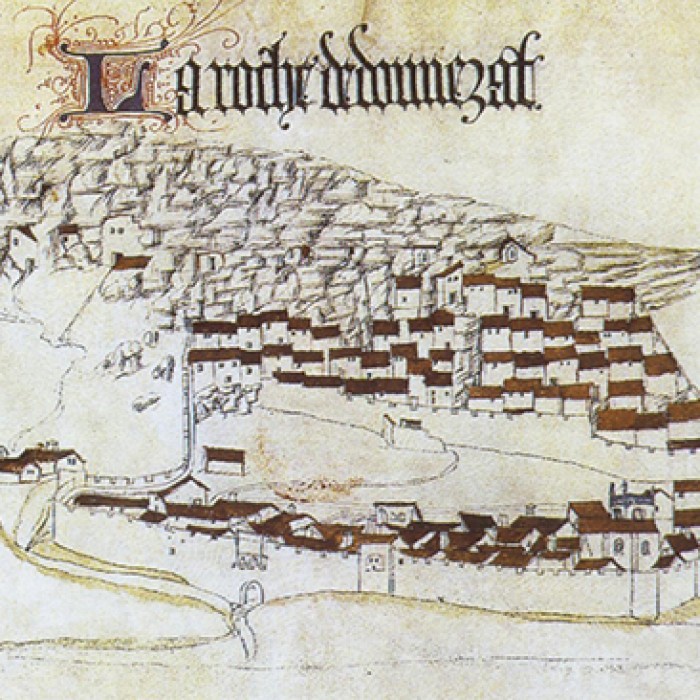 La roche dedonnezat.